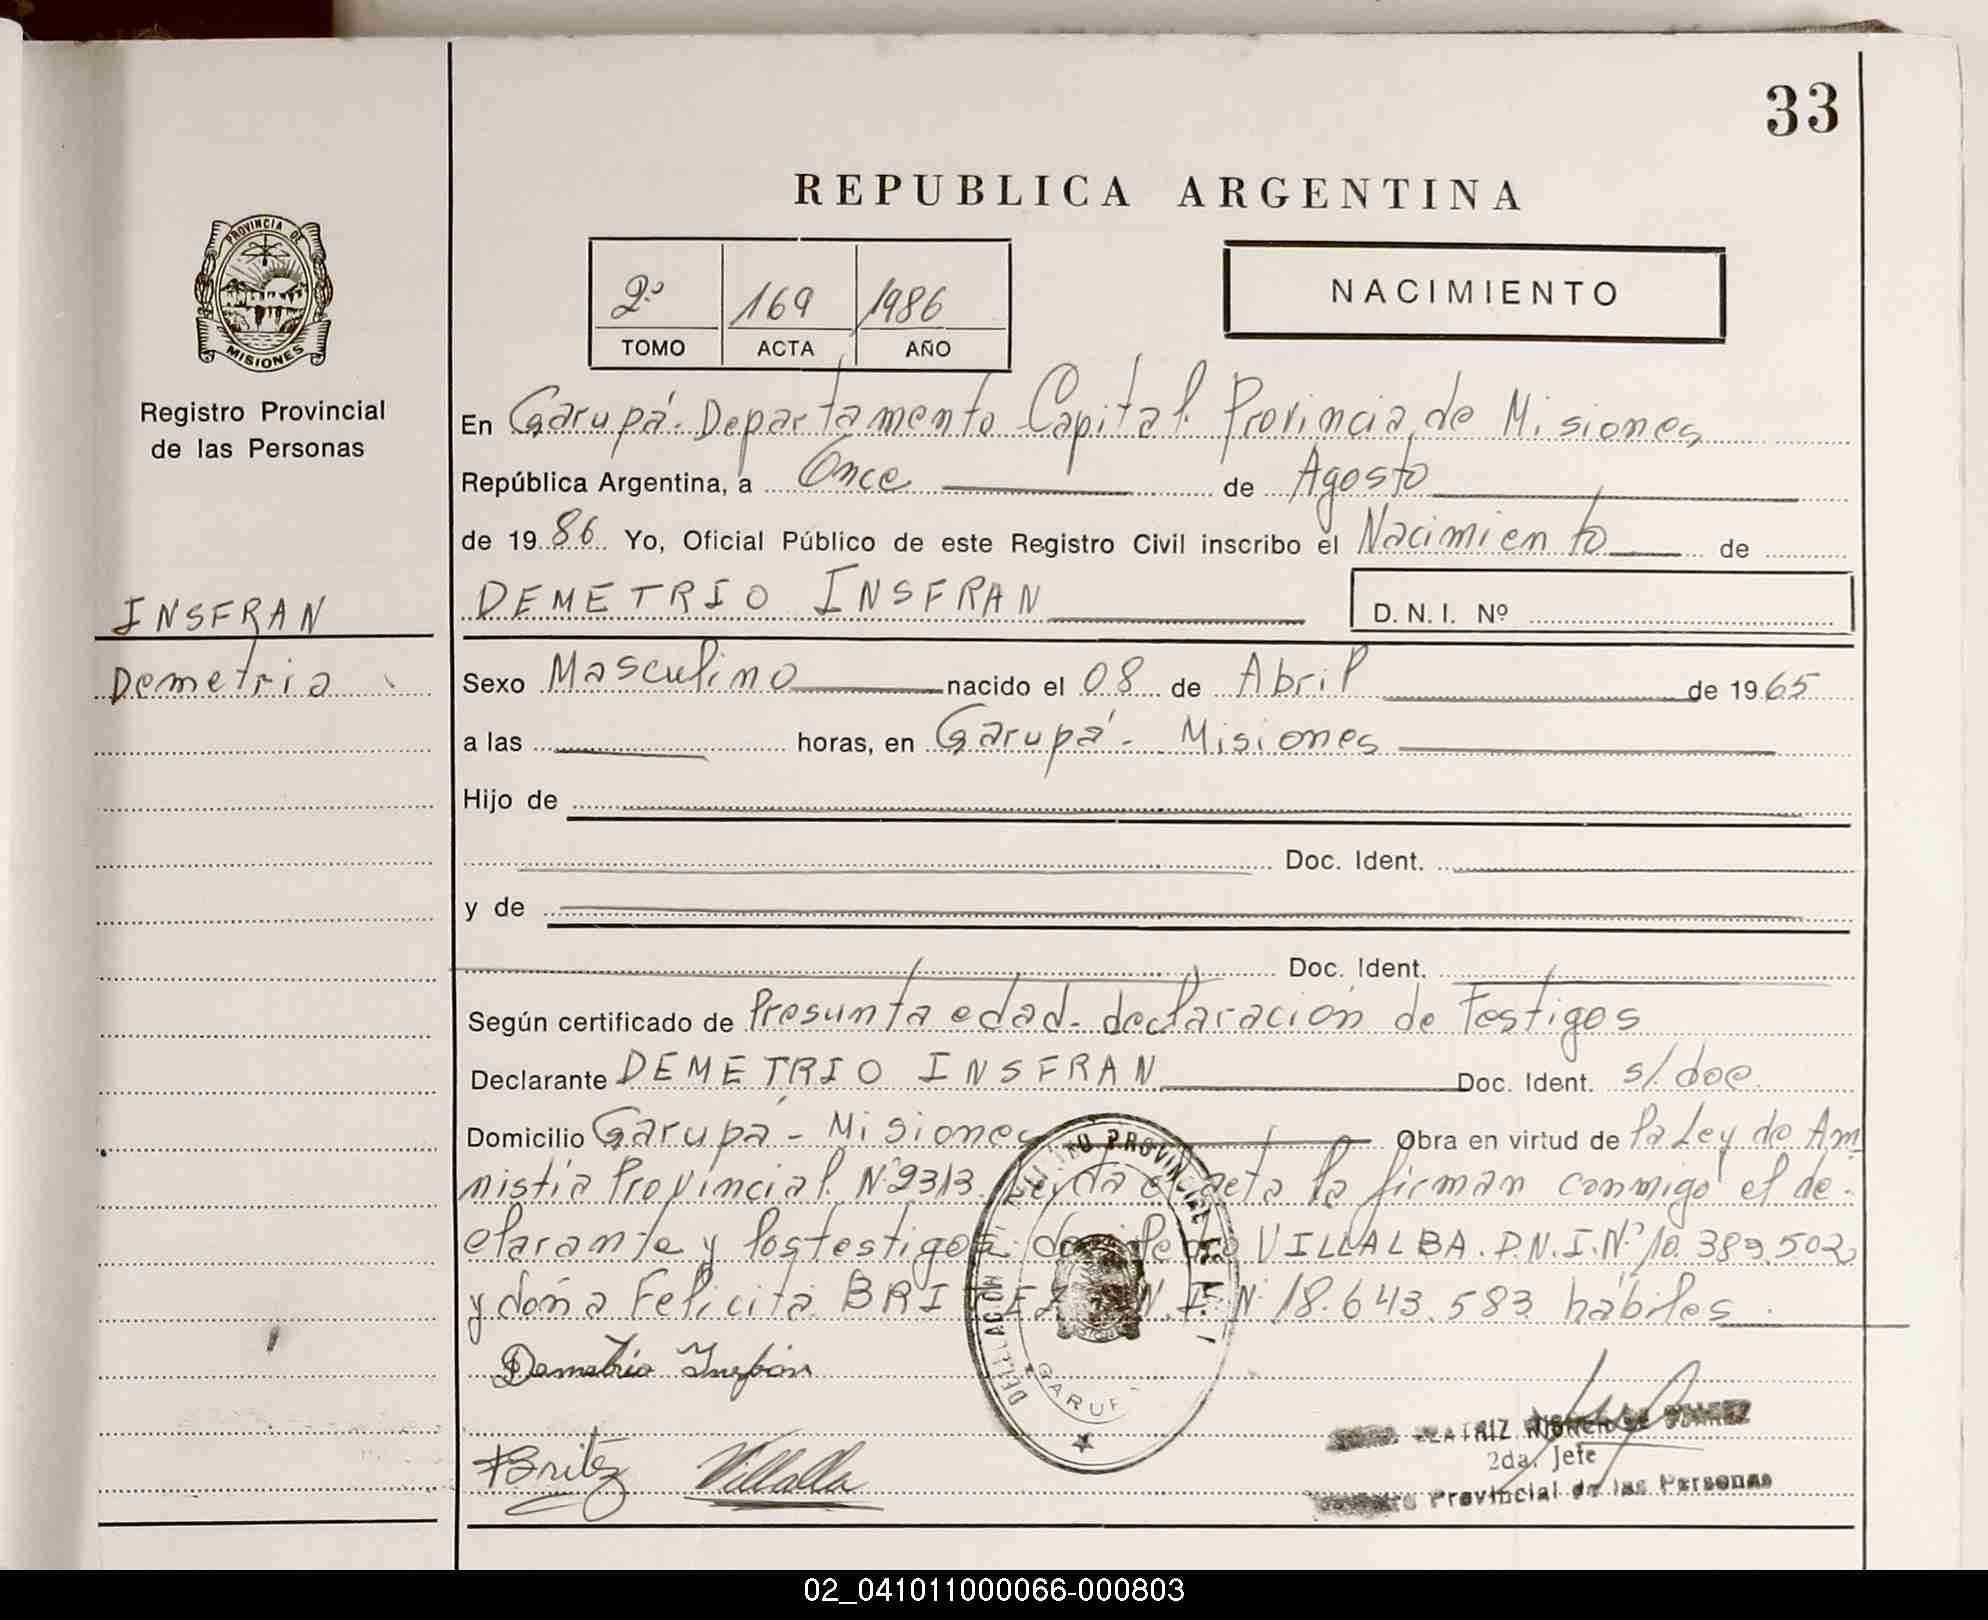 33
REPUBLICA ARGENTINA
PROVINCIA DE
MISIONES
2º 169 1986
TOMO ACTA AÑO
NACIMIENTO
Registro Provincial
de las Personas
En Garupá - Departamento Capital. Provincia de Misiones
República Argentina, a Once de Agosto
de 1986 Yo, Oficial Público de este Registro Civil inscribo el Nacimiento de
INSFRAN
DEMETRIO INSFRAN D. N. I. Nº
Demetrio
Sexo Masculino nacido el 08 de Abril de 1965
a las horas, en Garupá - Misiones
Hijo de
Doc. Ident.
y de
Doc. Ident.
Según certificado de Presunta edad - declaración de Testigos
Declarante DEMETRIO INSFRAN Doc. Ident. s/doc.
Domicilio Garupá - Misiones Obra en virtud de la Ley de Am
nistía Provincial Nº 2313. Leída el acta la firman conmigo el de-
clarante y los testigos: don Pedro VILLALBA. D.N.I.Nº 10.389.502
y doña Felicita BRITEZ D.N.I. Nº 18.643.583 hábiles.
Demetrio Insfran
Britez Villalba
BEATRIZ
2da. Jefe
Provincial de las Personas
DELEGACION REGISTRO PROVINCIAL DE
GARUP
02_041011000066-000803